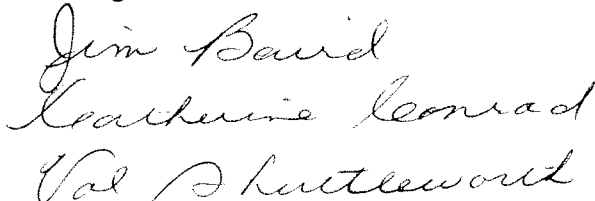 Jim Baird
Katherine Conrad
Val Shuttleworth